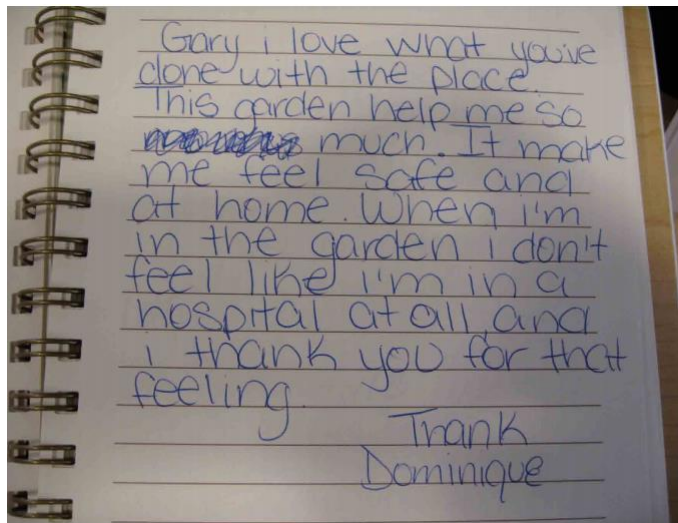 Gary i love what you've
done with the place.
This garden help me so
much. It make
me feel safe and
at home. When i'm
in the garden i don't
feel like i'm in a
hospital at all, and
i thank you for that
feeling.
Thank
Dominique